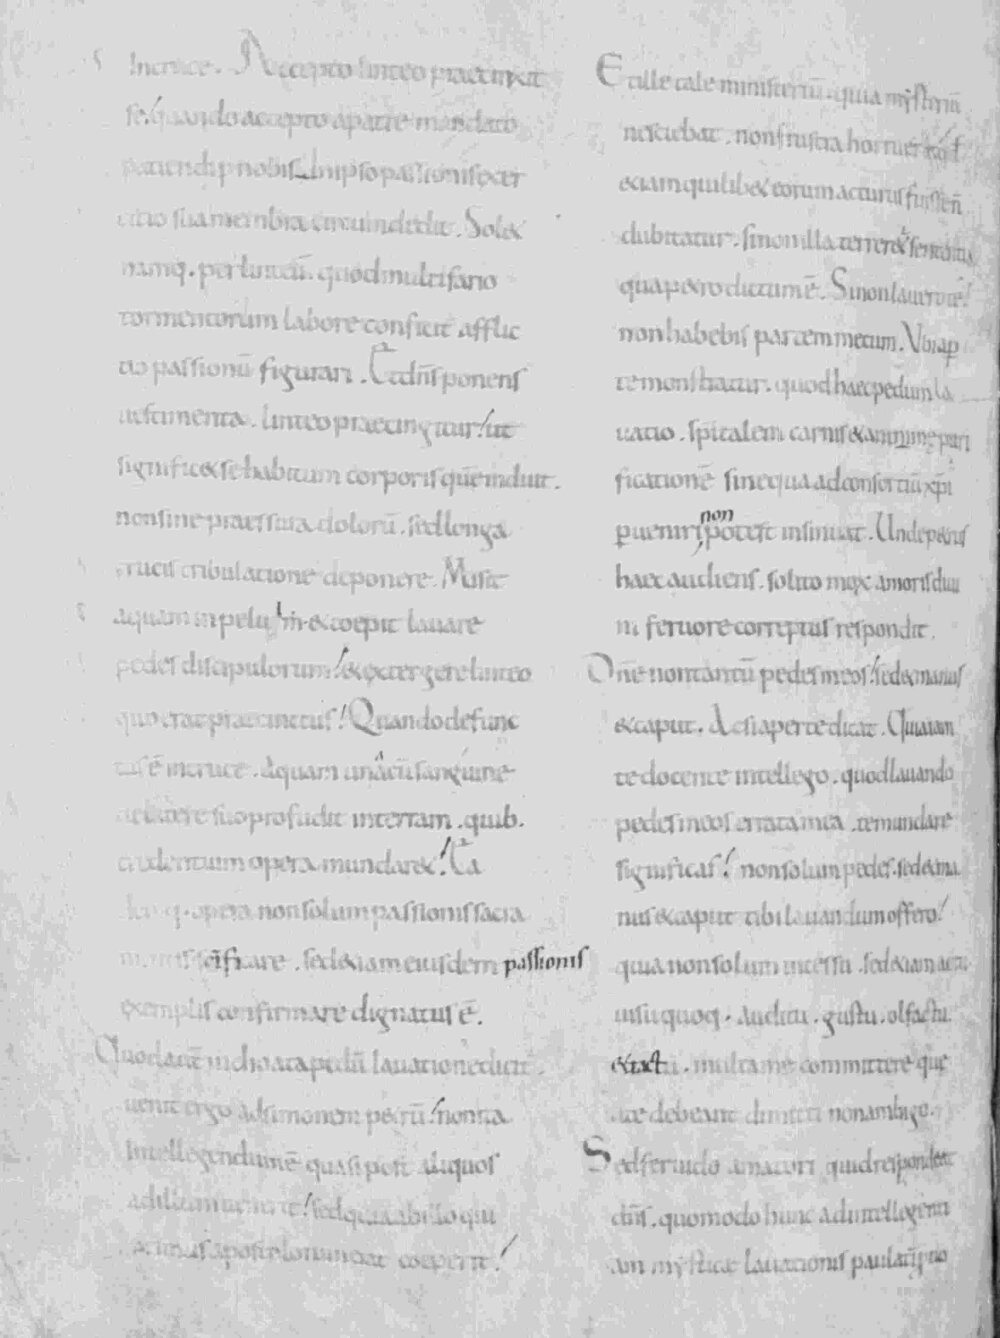 In cruce. Accepto linteo praecinxit
se! quando accepto a patre mandato
patiendi p nobis. In ipso passionis exer
citio sua membra circumdedit. Solet
namq. per linteū. quod multifario
tormentorum labore conficit afflic
tio passionū figurari. Et dn̄s ponens
uestimenta. linteo praecingitur! ut
significet se habitum corporis quē induit.
non sine praessura dolorū. sed longa
crucis tribulatione deponere. Misit
aquam in peluim & coepit lauare
pedes discipulorum! & extergere linteo
quo erat praecinctus! Quando defunc
tus ē in cruce. aquam una cū sanguine
de latere suo profudit in terram. quib.
credentium opera mundaret! Ea
q. opera non solum passionis sacra
sc̄ificare. sed & iam eiusdem passionis
exemplis confirmare dignatus ē.
Quod autē inchoata pedū lauatione dicit.
uenit ergo ad simonem petrū! non ita
Intellegendum ē quasi post aliquos
ad illum uenerit! sed quia ab illo qui
primus apostolorum erat coeperit!
Et ille tale ministeriū. quia mysteriū
nesciebat. non frustra horruerit
& iam quilibet eorum acturus fuisse n̄
dubitatur. si non illa terreret sententia
qua petro dictum ē. Si non lauero te!
non habebis partem mecum. Vbi ap
te monstratur. quod haec pedum la
uatio. spitalem carnis & animae puri
ficationē sine qua ad consortiū xp̄i
p uenir̄i non potest insinuat. Unde petrus
haec audiens. solito mox amoris diui
ni feruore correptus respondit.
Dn̄e non tantū pedes meos! sed & manus
& caput. Ac si aperte dicat. Quia iam
te docente intellego. quod lauando
pedes meos errata mea. te mundare
significas! non solum pedes. sed & ma
nus & caput tibi lauandum offero!
quia non solum incessu. sed & iam actu
uisu quoq. auditu. gustu. olfactu.
& tactu. multa me committere que
a te debeant dimitti non ambigo.
Sed feruido amatori quid respondent
dn̄s. quomodo hunc ad intellegenti
am mysticae lauationis paulatī pro